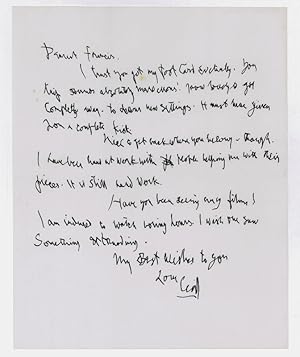 Dearest Francis.
I trust you got my post card eventually. Your
trip sounds absolutely marvellous. how lovely to get
completely away. to diverse new settings. It must have given
you a complete kick
Nice to get back where you belong – though.
I have been hard at work with people helping me with their
pieces. It is still hard work.
Have you been seeing any films?
I am induced to watch boring hours. I wish one saw
Something outstanding.
My Best Wishes to you
Love Cecil